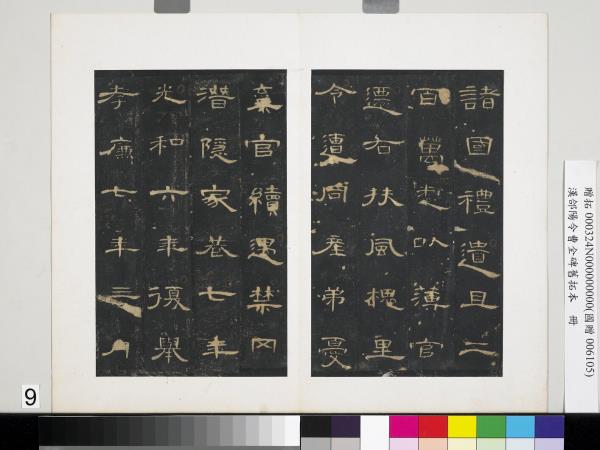 諸國禮遺且二
百萬悉以薄官
遷右扶風槐里
令遭同產弟憂
棄官續遇禁网
潛隱家巷七年
光和六年復舉
孝廉七年三月
贈拓 000324N000000000(國贈 006105)
漢郃陽令曹全碑舊拓本 冊
9